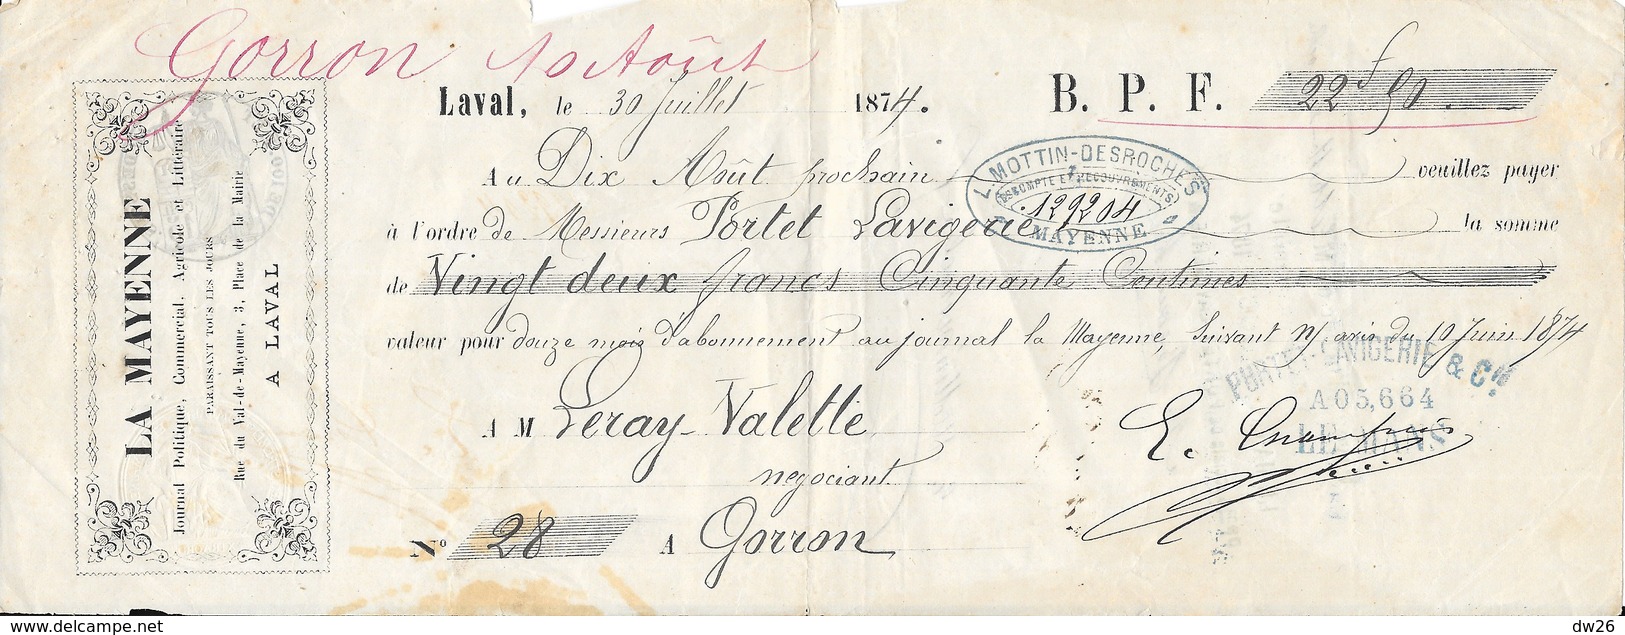 Gorron 10 Août
Laval, le 30 Juillet 1874.
B. P. F. 22f 50.
Au Dix Août prochain veuillez payer
à l'ordre de Messieurs Portet Lavigerie la somme
de Vingt deux francs Cinquante Centimes
valeur pour douze mois d'abonnement au journal la Mayenne, Suivant n/ avis du 10 Juin 1874
A M Leray-Valette
negociant
No 28 A Gorron
L. MOTTIN-DESROCHES
ESCOMPTE ET RECOUVREMENTS
129204
A MAYENNE
PORTET-LAVIGERIE & Cie.
A05,664
LE MANS
LA MAYENNE
Journal Politique, Commercial, Agricole et Littéraire
PARAISSANT TOUS LES JOURS
Rue du Val-de-Mayenne, 3, Place de la Mairie
A LAVAL
delcampe.net
dw26